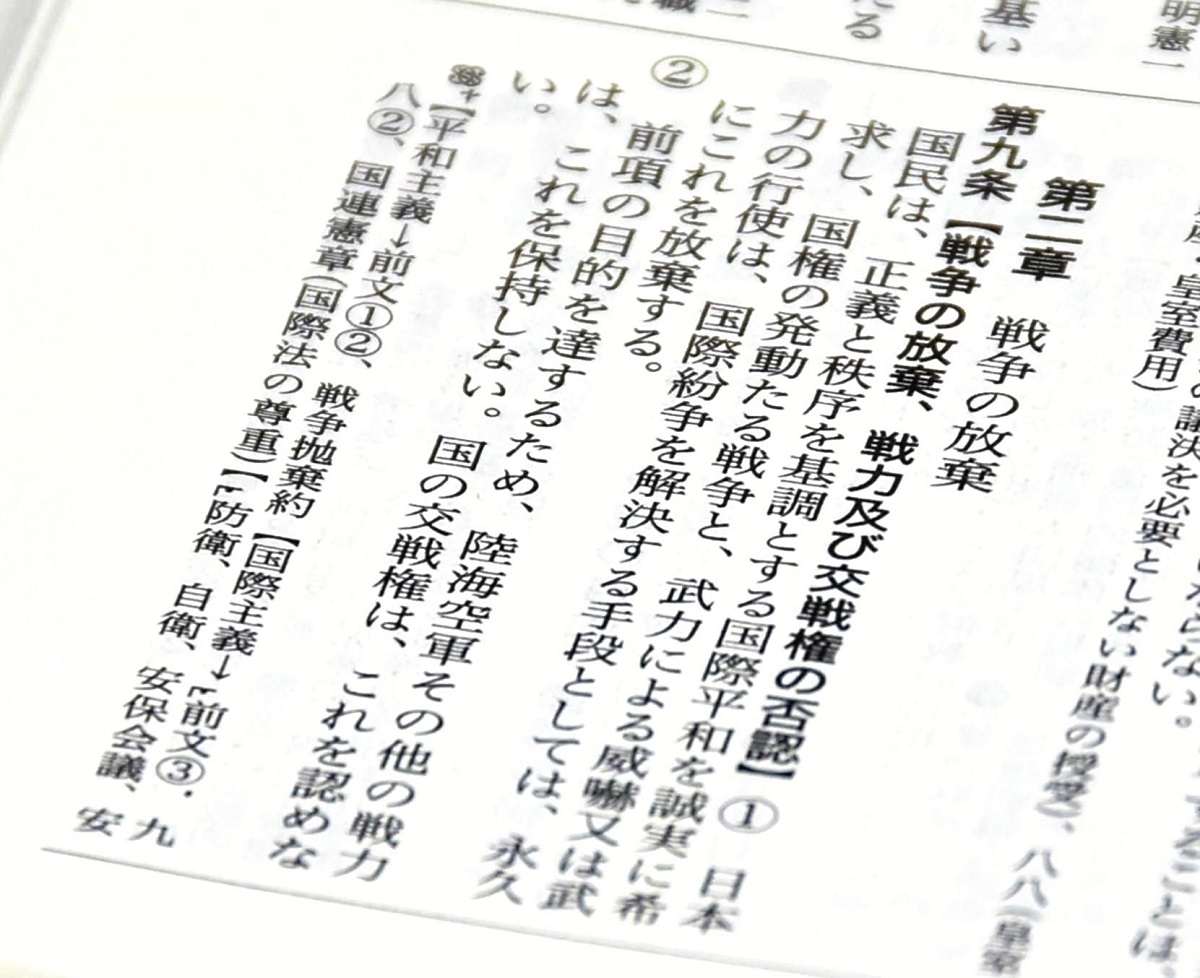 明憲一
基い
たる
職一
皇室費用)
の議決を必要としない財産の授受)、八八(皇室
第二章　戦争の放棄
第九条【戦争の放棄、戦力及び交戦権の否認】①　日本
国民は、正義と秩序を基調とする国際平和を誠実に希
求し、国権の発動たる戦争と、武力による威嚇又は武
力の行使は、国際紛争を解決する手段としては、永久
にこれを放棄する。
②　前項の目的を達するため、陸海空軍その他の戦力
は、これを保持しない。国の交戦権は、これを認めな
い。
【平和主義→前文①②、戦争抛棄約【国際主義→前文③・九
八②、国連憲章(国際法の尊重)【防衛、自衛、安保会議、安